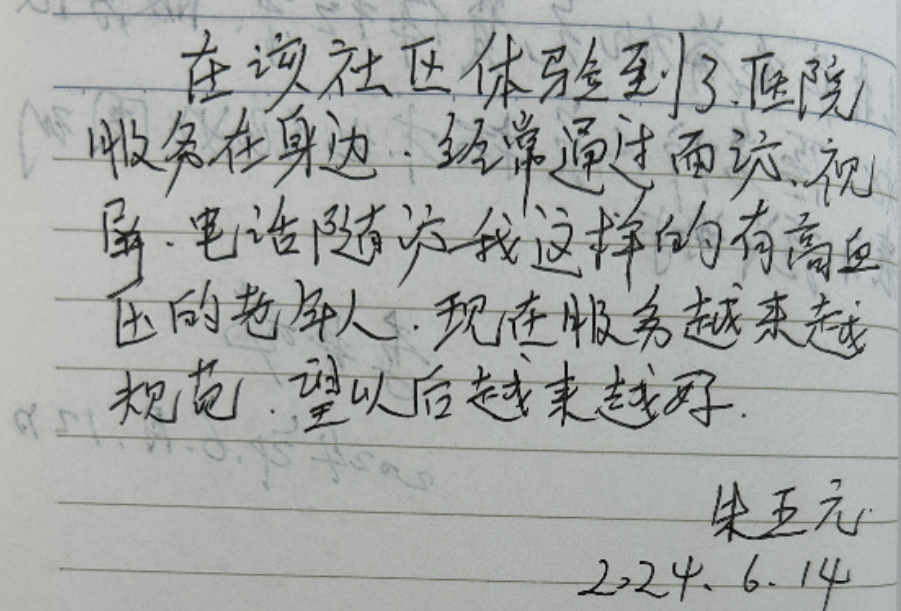 在该社区体验到了.医院
服务在身边.经常通过面访、视
屏.电话随访我这样的有高血
压的老年人.现在服务越来越
规范.望以后越来越好.
朱玉元
2024.6.14